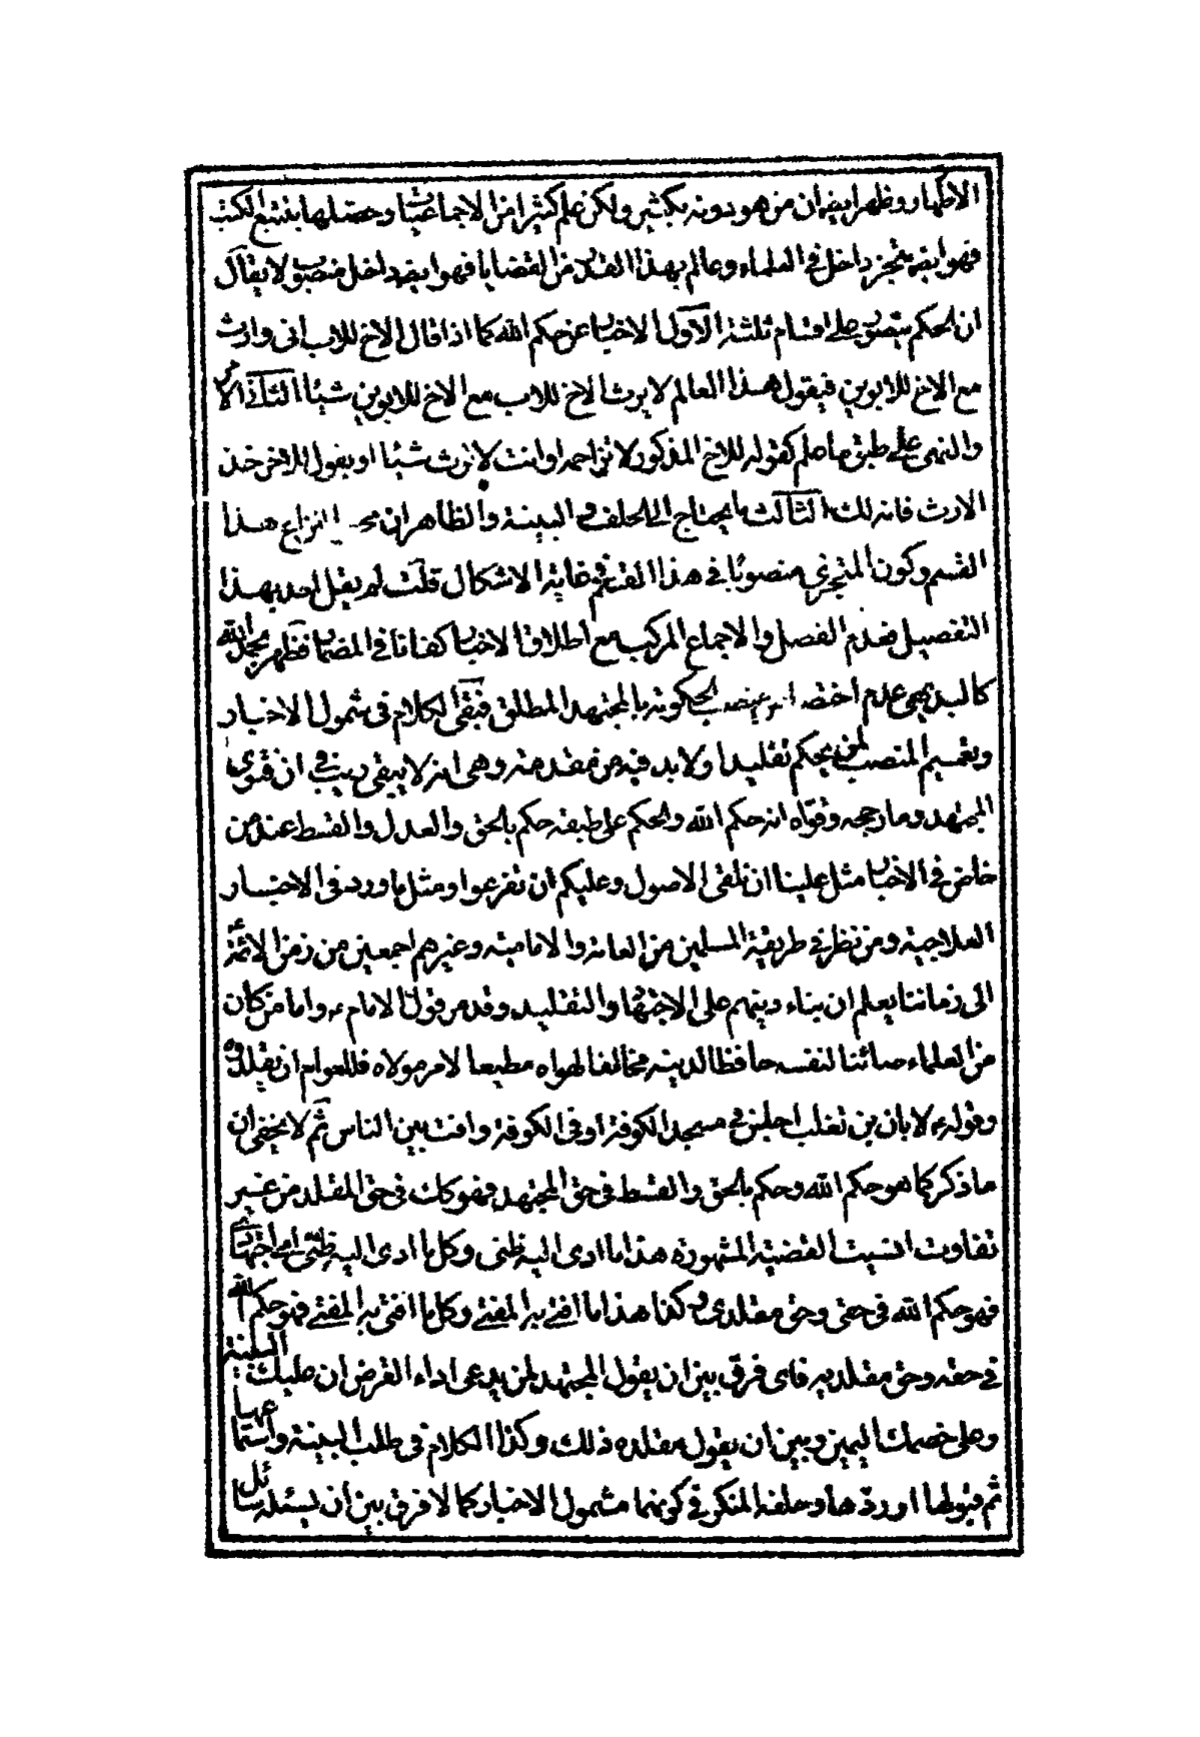 الاظهار وظهر ايضا ان من هو دونه بكثير ولكن علم كثيرا من الاجماعيات وحصلها بتتبع الكتب
فهو ايضا متجز داخل في العلماء وعالم بهذا القدر من القضايا فهو ايضا داخل منصوب لا يقال
ان الحكم يتصور على اقسام ثلثة الاول الاخبار عن حكم الله كما اذا قال الاخ للاب انى وارث
مع الاخ للابوين فيقول هذا العالم لا يرث الاخ للاب مع الاخ للابوين شيئا الثانى الامر
والنهى على طبق ما علم كقوله للاخ المذكور لا تزاحم او انت لا ترث شيئا او يقول للاخر خذ
الارث فانه لك الثالث ما يحتاج الى الحلف والبينة والظاهر ان النزاع هذا
القسم وكون المتجزى منصوبا في هذا القسم غاية الاشكال قلت لم يقل احد بهذا
التفصيل فعدم الفصل والاجماع المركب مع اطلاق الاخبار كفانا في المضمار فظهر بحمد الله
كالبديهى عدم اختصا بالمجتهد المطلق فبقى الكلام في شمول الاخبار
وتعميم المنصب لمن يحكم تقليدا ولا بد فيه من مقدمة وهى انه لا يبقى ريب في ان فتوى
المجتهد وما رجحه وقواه انه حكم الله والحكم على طبقه حكم بالحق والعدل والقسط عند من
خاض في الاخبار مثل علينا ان نلقى الاصول وعليكم ان تفرعوا ومثل ما ورد في الاخبار
العلاجية ومن نظر في طريقة المسلمين من العامة والامامية وغيرهم اجمعين من زمن الائمة ع
الى زماننا يعلم ان بناء دينهم على الاجتهاد والتقليد وقد مر قول الامام ء واما من كان
من العلماء صائنا لنفسه حافظا لدينه مخالفا لهواه مطيعا لامر مولاه فللعوام ان يقلدوه
وقوله ء لابان بن تغلب اجلس في مسجد الكوفة او في الكوفة وافت بين الناس ثم لا يخفى ان
ما ذكر كما هو حكم الله وحكم بالحق والقسط في حق المجتهد فهو كك في حق المقلد من غير
تفاوت انسيت القضية المشهورة هذا ما ادى اليه ظنى وكل ما ادى اليه ظنى اى اجتهادى
فهو حكم الله في حقى وحق مقلدى وكذا هذا ما افتى به المفتى وكل ما افتى به المفتى فهو حكم الله
في حقه وحق مقلديه فاى فرق بين ان يقول المجتهد لمن يدعى اداء القرض ان عليك البينة
وعلى خصمك اليمين وبين ان يقول مقلده ذلك وكذا الكلام في طلب البينة واستماعها
ثم قبولها او ردها وحلف المنكر في كونهما مشمول الاخبار كما لا فرق بين ان يسئله سائل